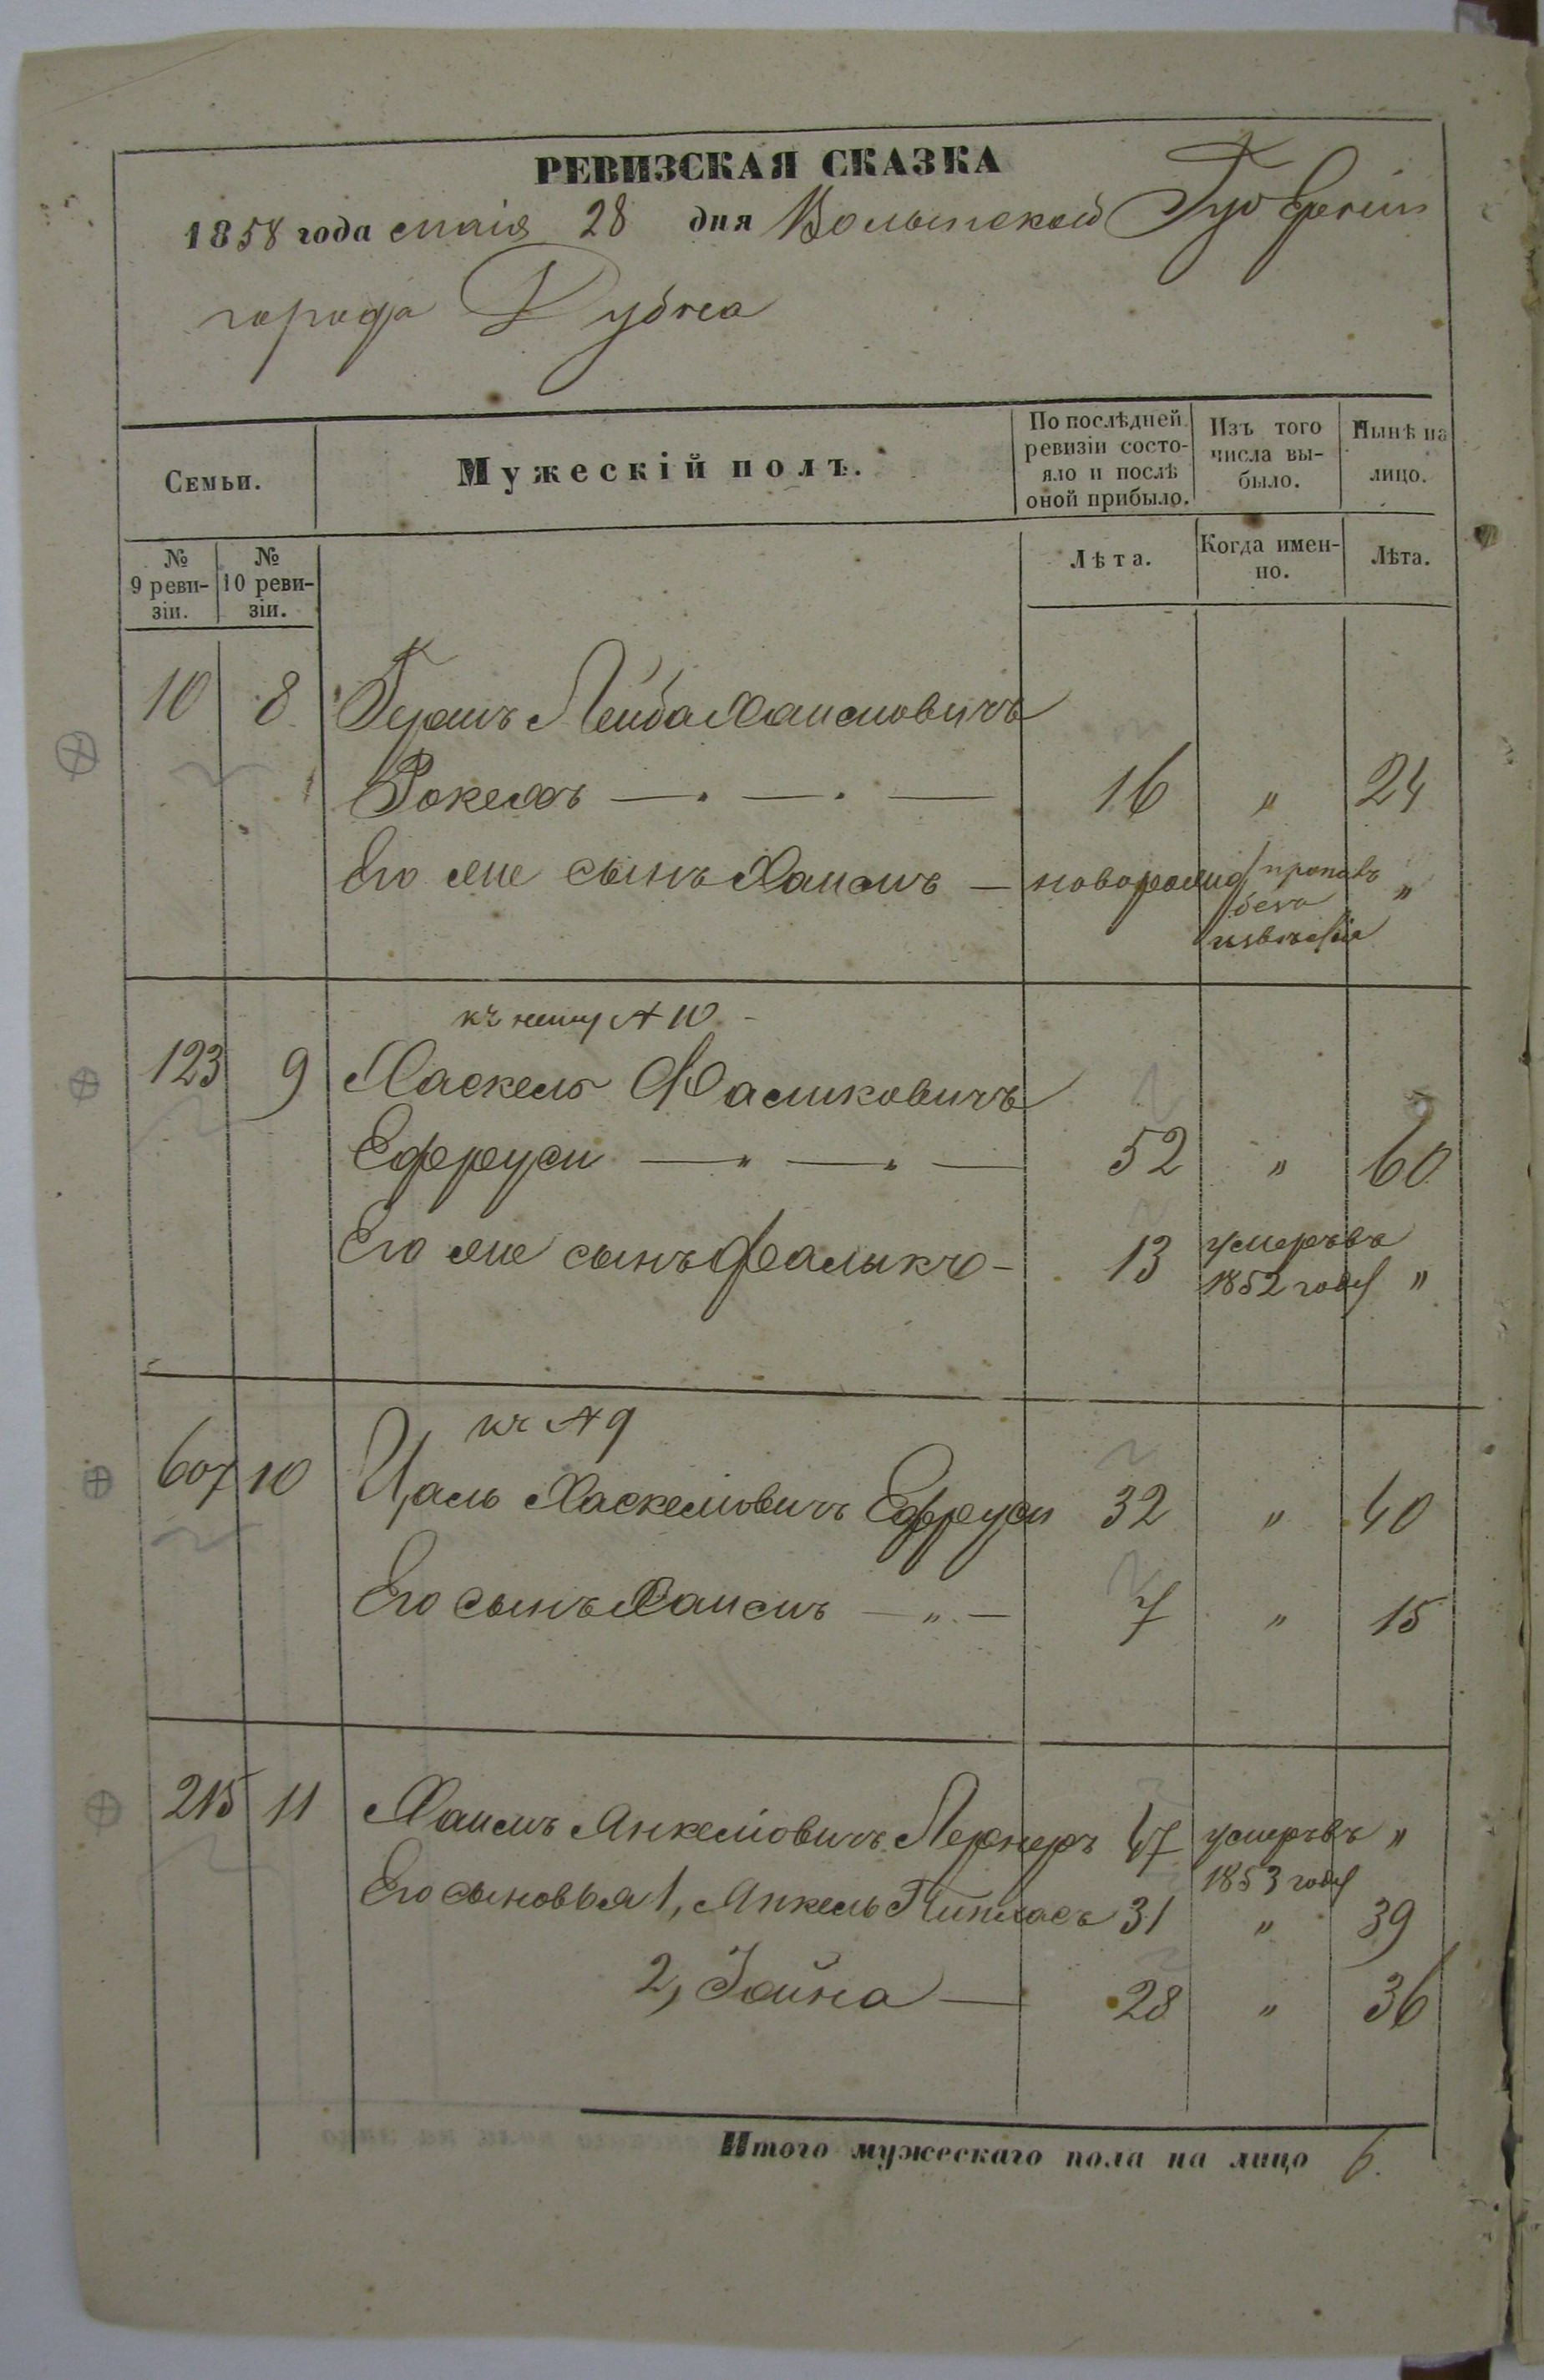 РЕВИЗСКАЯ СКАЗКА
1858 года маія 28 дня Волынской Губерніи
города Дубна
Семьи.
Мужескій полъ.
По послѣдней ревизіи состо-
яло и послѣ
оной прибыло.
Изъ того
числа вы-
было.
Нынѣ на
лицо.
№
9 реви-
зіи.
№
10 реви-
зіи.
Лѣта.
Когда имен-
но.
Лѣта.
10 8 Гершъ Лейба Хаимовичъ
Рокехъ — . — . — 16 " 24
Его же сынъ Хаимъ — новорожд пропавъ "
безъ
извѣстія
къ нему № 10 -
123 9 Хаскель Фаликовичъ
Ефруси — " — " — 52 " 60
Его же сынъ Фаликъ - 13 умеръ въ
1852 году "
къ № 9
607 10 Цаль Хаскеліовичъ Ефруси 32 " 40
Его сынъ Хаимъ — " — 7 " 15
215 11 Хаимъ Анкеліовичъ Лернеръ 47 умеръ въ "
1853 году
Его сыновья 1, Анкель 31 " 39
2, — 28 " 36
Итого мужескаго пола на лицо 6.